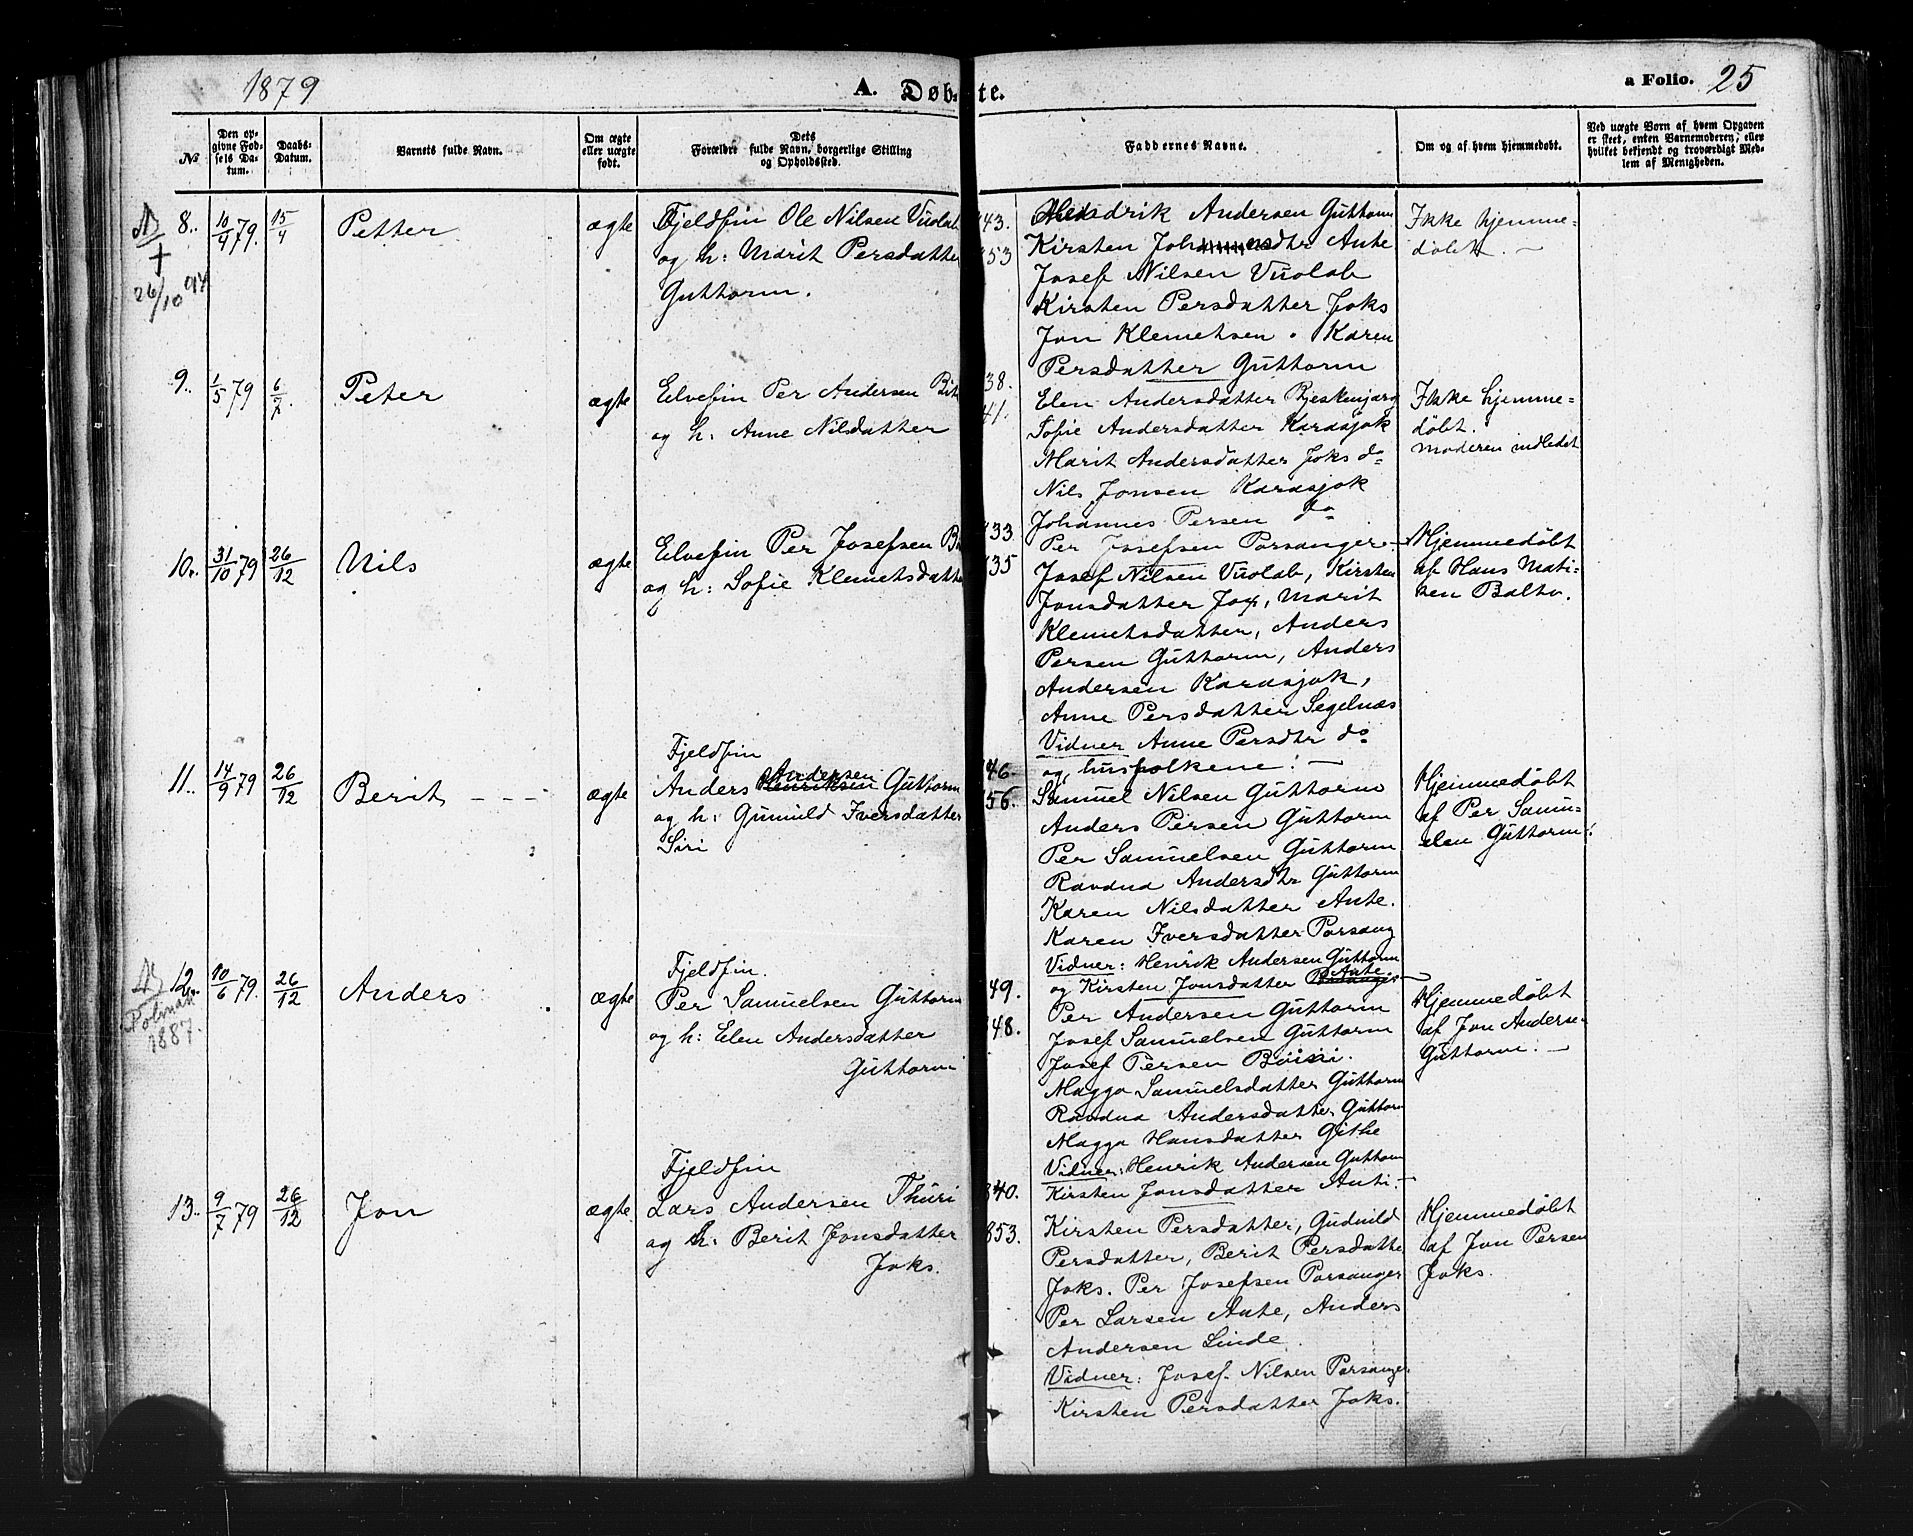 1879 A. Døbte. a Folio. 25
№
Den opgivne Fødsels Datum.
Daabs-Datum.
Barnets fulde Navn.
Om ægte eller uægte født.
Dets Forældres fulde Navn, borgerlige Stilling og Opholdssted.
Faddernes Navne.
Om og af hvem hjemmedøbt.
Ved uægte Børn af hvem Opgaven er skeet, enten Barnemoderen, eller hvilket bekjendt og troværdigt Medlem af Menigheden.
† 26/10 94
8.. 10/4 79. 15/4 Petter ægte
Fjeldfin Ole Nilsen Vuolab
og h: Marit Persdatter
Guttorm.
43.
53
Hendrik Andersen Guttorm
Kirsten Johannesdtr Ante
Josef Nilsen Vuolab
Kirsten Persdatter Joks
Jon Klemetsen. Karen
Persdatter Guttorm
Ikke hjemme-
døbt. —
9.. 1/5 79 6/7. Peter ægte
Elvefin Per Andersen
og h: Anne Nilsdatter
38.
41.
Elen Andersdatter
Sofie Andersdatter Karasjok
Marit Andersdatter Joks do
Nils Jonsen Karasjok
Johannes Persen do
Per Josefsen Porsanger.
Ikke hjemme=
døbt.
Moderen indledet
10. 31/10 79 26/12 Nils ægte
Elvefin Per Josefsen
og h: Sofie Klemetsdatter
33
35
Josef Nilsen Vuolab, Kirsten
Jonsdatter Jox, Marit
Klemetsdatter, Anders
Persen Guttorm, Anders
Andersen Karasjok,
Anne Persdatter Segelnæs
Vidner Anne Persdtr do
og husfolkene! —
Hjemmedøbt
af Hans Mati-
sen Balto.
11.. 14/9 79 26/12 Berit - - - ægte
Fjeldfin
Anders Henriksen Andersen Guttorm
og h: Gunnild Iversdatter
Siri
46.
56.
Samuel Nilsen Guttorm
Anders Persen Guttorm
Per Samuelsen Guttorm
Ravdna Andersdtr Guttorm
Karen Nilsdatter Ante.
Karen Iversdatter Porsang
Vidner: Henrik Andersen Guttorm
og Kirsten Jonsdatter Ante
Hjemmedøbt
af Per Samu-
elsen Guttorm.
Polmak
1887.
12.. 10/6 79. 26/12 Anders ægte
Fjeldfin.
Per Samuelsen Guttorm
og h: Elen Andersdatter
Guttorm
49.
48.
Per Andersen Guttorm
Josef Samuelsen Guttorm
Josef Persen
Magga Samuelsdatter Guttorm
Ravdna Andersdatter Guttorm
Magga Hansdatter Githe
Vidner: Henrik Andersen Guttorm
Kirsten Jonsdatter Anti. —
Hjemmedøbt
af Jon Anderse-
Guttorm. —
13.. 9/7 79 26/12 Jon ægte.
Fjeldfin
Lars Andersen Thuri
og h: Berit Jonsdatter
Joks.
840.
853.
Kirsten Persdatter, Gudnild
Persdatter, Berit Persdatte
Joks. Per Josefsen Porsanger
Per Larsen Ante, Anders
Andersen Linde.
Vidner: Josef Nilsen Porsanger
Kirsten Persdatter Joks.
Hjemmedøbt
af Jon Persen
Joks.